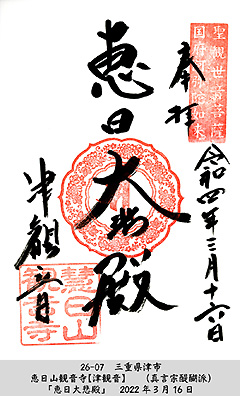 聖観世音菩薩
国府阿弥陀如来
奉拝
令和四年三月十六日
恵日
大悲殿
津観音
恵日山
観音寺
26-07　三重県津市
恵日山観音寺【津観音】　（真言宗醍醐派）
「恵日大悲殿」　2022年3月16日